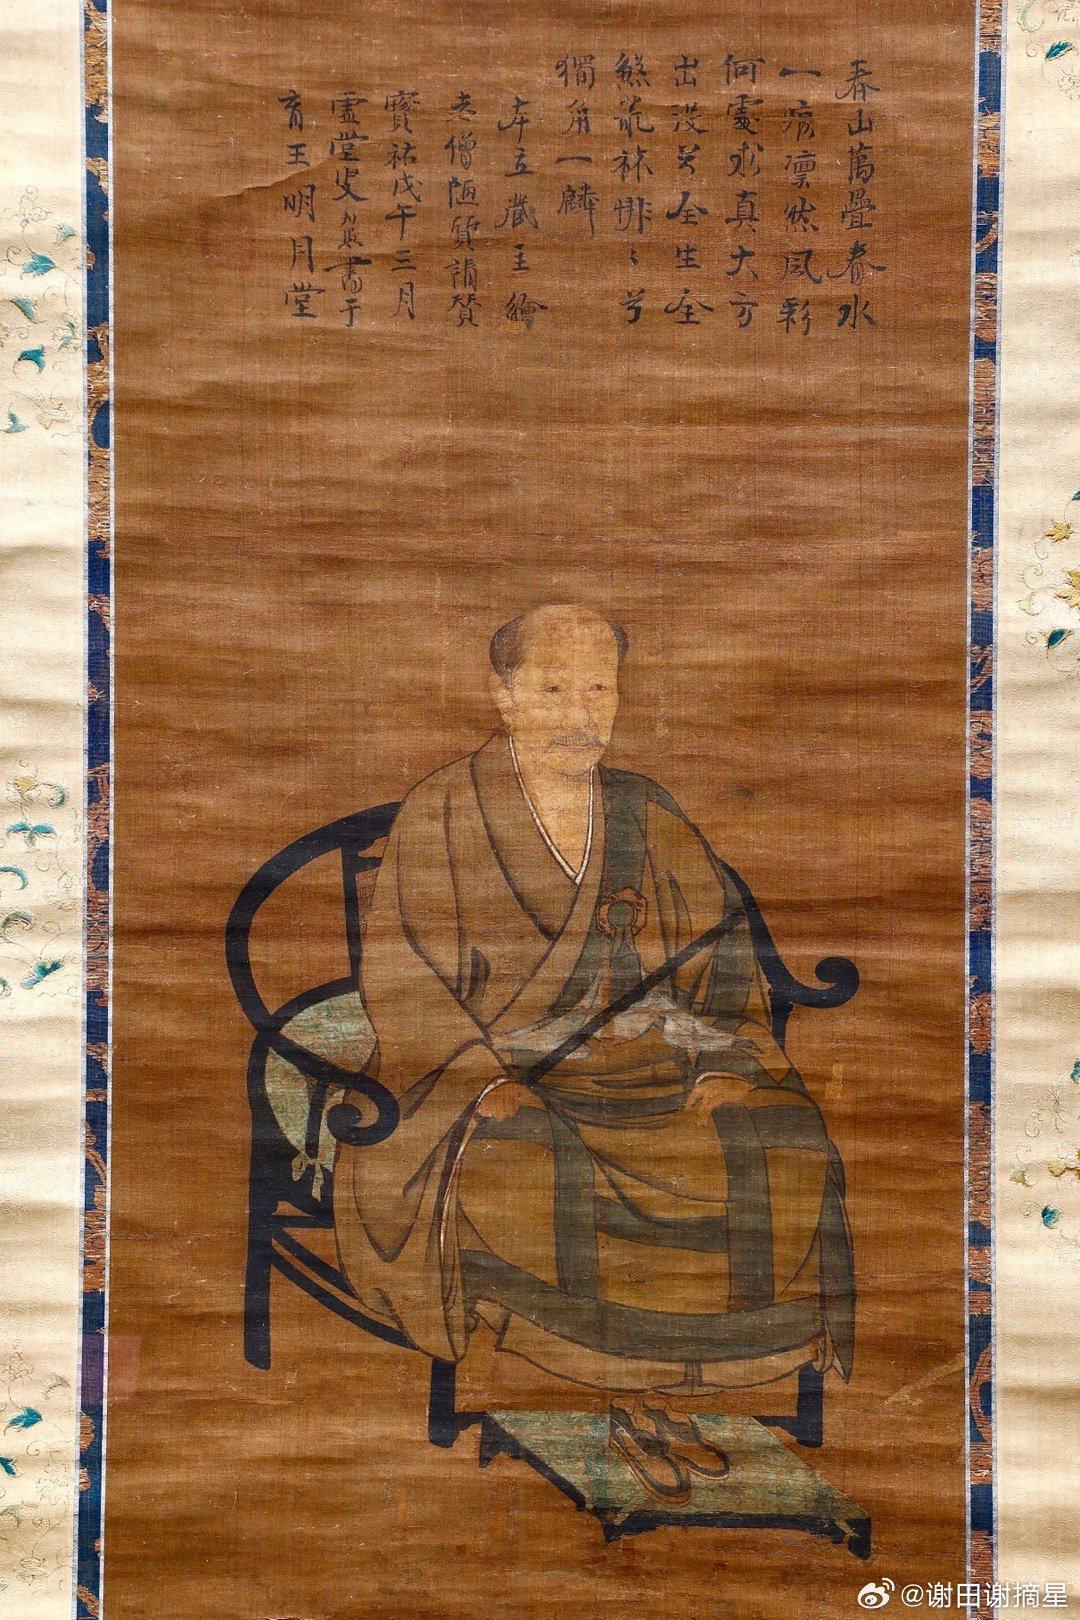 春山萬疊春水
一痕凛然風彩
何處求真大方
出没兮全生全
煞叢林排々兮
獨角一麟
本立藏主繪
老僧陋質請賛
寶祐戊午三月
虛堂叟智愚書于
育王明月堂
@谢田谢摘星